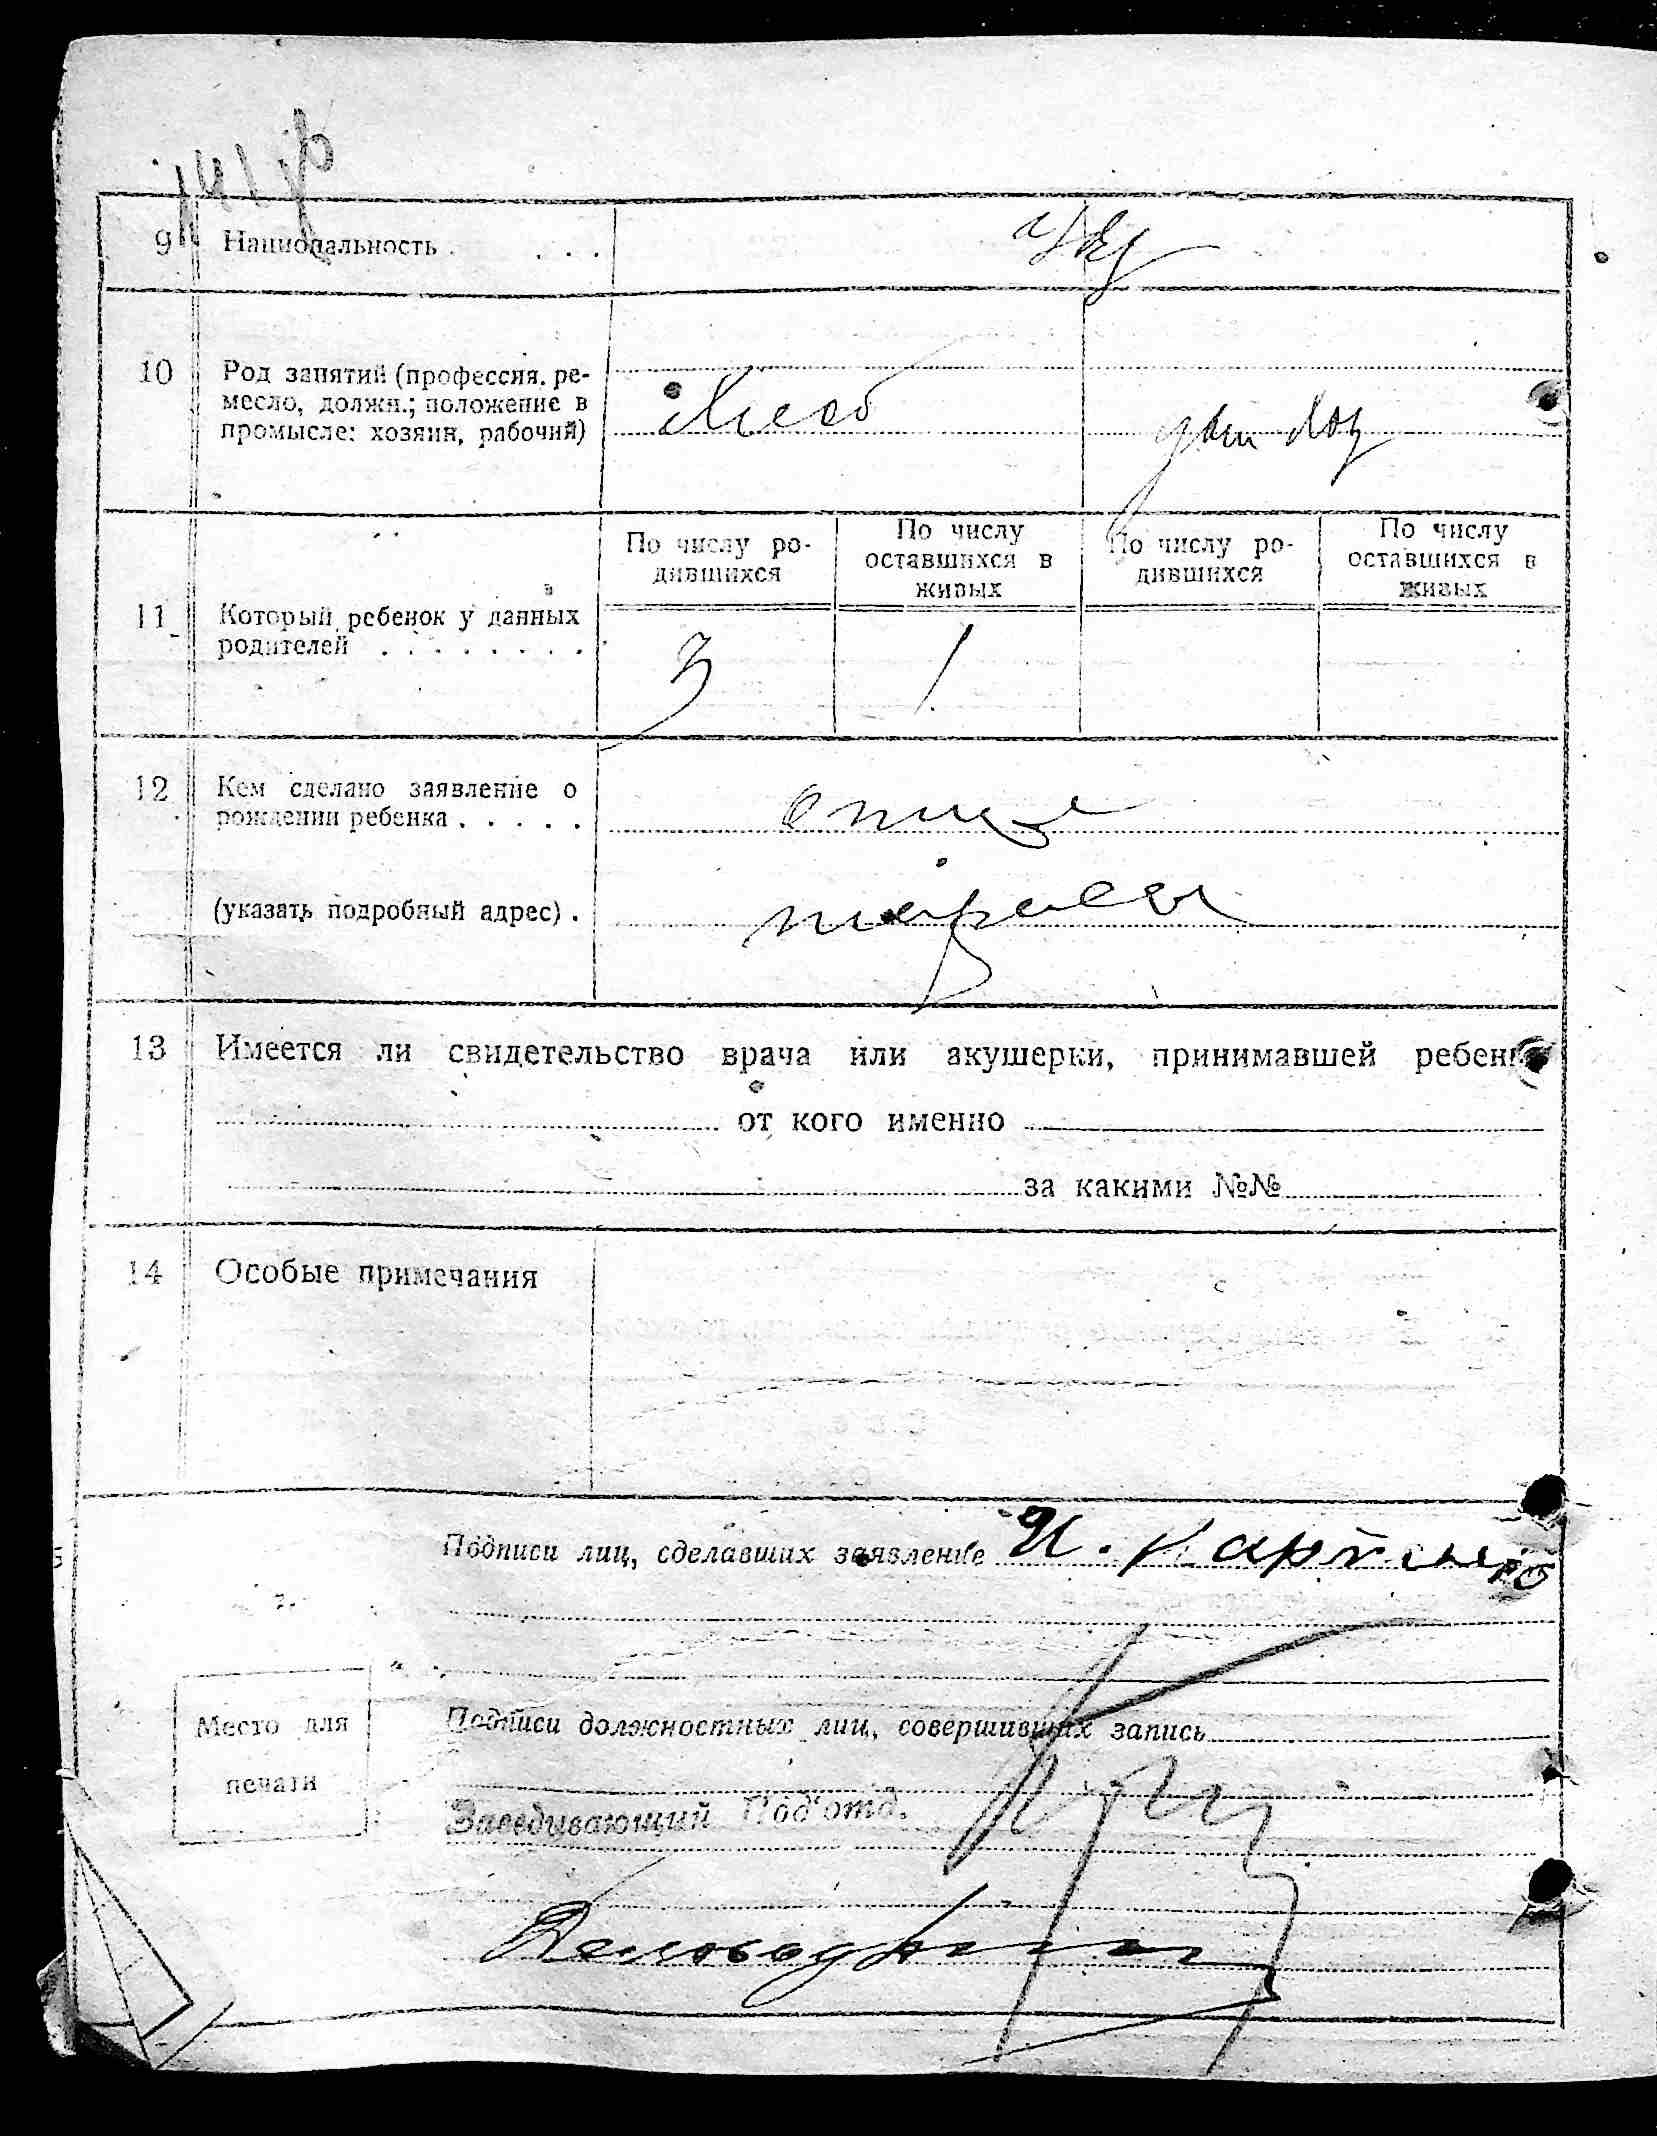 9 Национальность . . . . укр
10 Род занятий (профессия. ре-
месло, должн.; положение в
промысле: хозяин, рабочий)
Хлеб дом хоз
11 Который ребенок у данных
родителей . . . . . . . .
По числу ро-
дившихся
По числу
оставшихся в
живых
По числу ро-
дившихся
По числу
оставшихся в
живых
3 1
12 Кем сделано заявление о
рождении ребенка . . . . .
отце
(указать подробный адрес) .
13 Имеется ли свидетельство врача или акушерки, принимавшей ребен
от кого именно
за какими №№
14 Особые примечания
Подписи лиц, сделавших заявление И.
Место для
печати
Подписи должностных лиц, совершивших запись
Заведывающий Под'отд.
Деловод